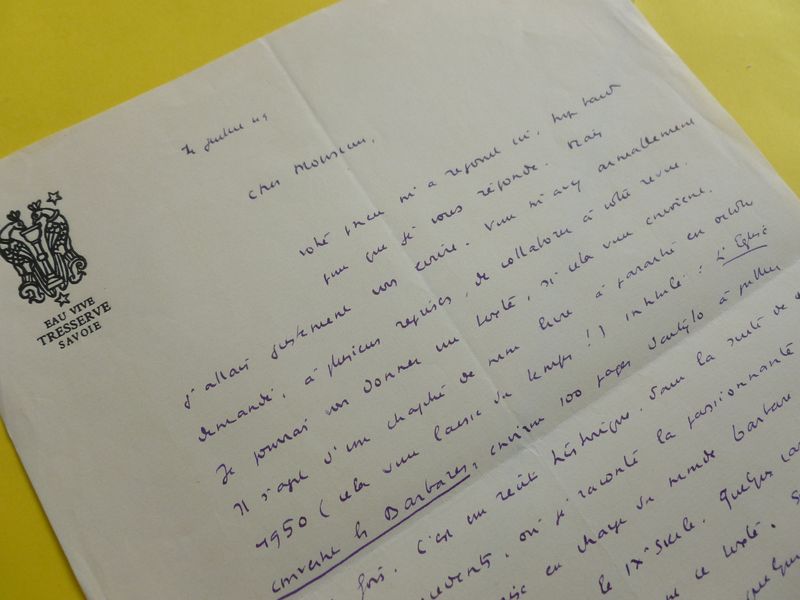 EAU VIVE
TRESSERVE
SAVOIE
juillet 49
Cher Monsieur,
votre pneu m'a rejoint ici. trop tard
pour que je vous réponde. Mais
j'allais justement vous écrire. Vous m'avez aimablement
demandé, à plusieurs reprises, de collaborer à votre revue.
Je pourrais vous donner un texte, si cela vous convient.
Il s'agit d'un chapitre de mon livre à paraître en octobre
1950 (cela vous laisse du temps!) intitulé: L'Eglise
convertit les Barbares, environ 100 pages dactylo à publier
fois. C'est un récit historique, dans la suite de
où je raconte la passionnante
en charge du monde barbare
le IXe siècle. Quelques
ce texte.